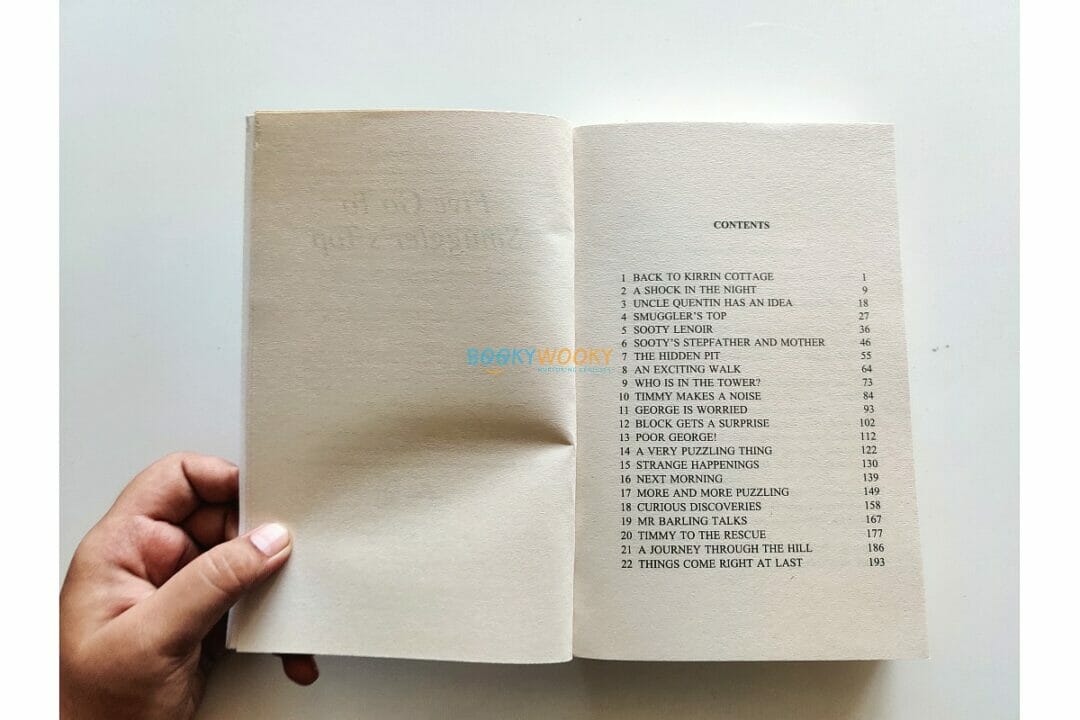 Five Go To
Smuggler's Top
BOOKYWOOKY
CONTENTS
1 BACK TO KIRRIN COTTAGE 1
2 A SHOCK IN THE NIGHT 9
3 UNCLE QUENTIN HAS AN IDEA 18
4 SMUGGLER'S TOP 27
5 SOOTY LENOIR 36
6 SOOTY'S STEPFATHER AND MOTHER 46
7 THE HIDDEN PIT 55
8 AN EXCITING WALK 64
9 WHO IS IN THE TOWER? 73
10 TIMMY MAKES A NOISE 84
11 GEORGE IS WORRIED 93
12 BLOCK GETS A SURPRISE 102
13 POOR GEORGE! 112
14 A VERY PUZZLING THING 122
15 STRANGE HAPPENINGS 130
16 NEXT MORNING 139
17 MORE AND MORE PUZZLING 149
18 CURIOUS DISCOVERIES 158
19 MR BARLING TALKS 167
20 TIMMY TO THE RESCUE 177
21 A JOURNEY THROUGH THE HILL 186
22 THINGS COME RIGHT AT LAST 193